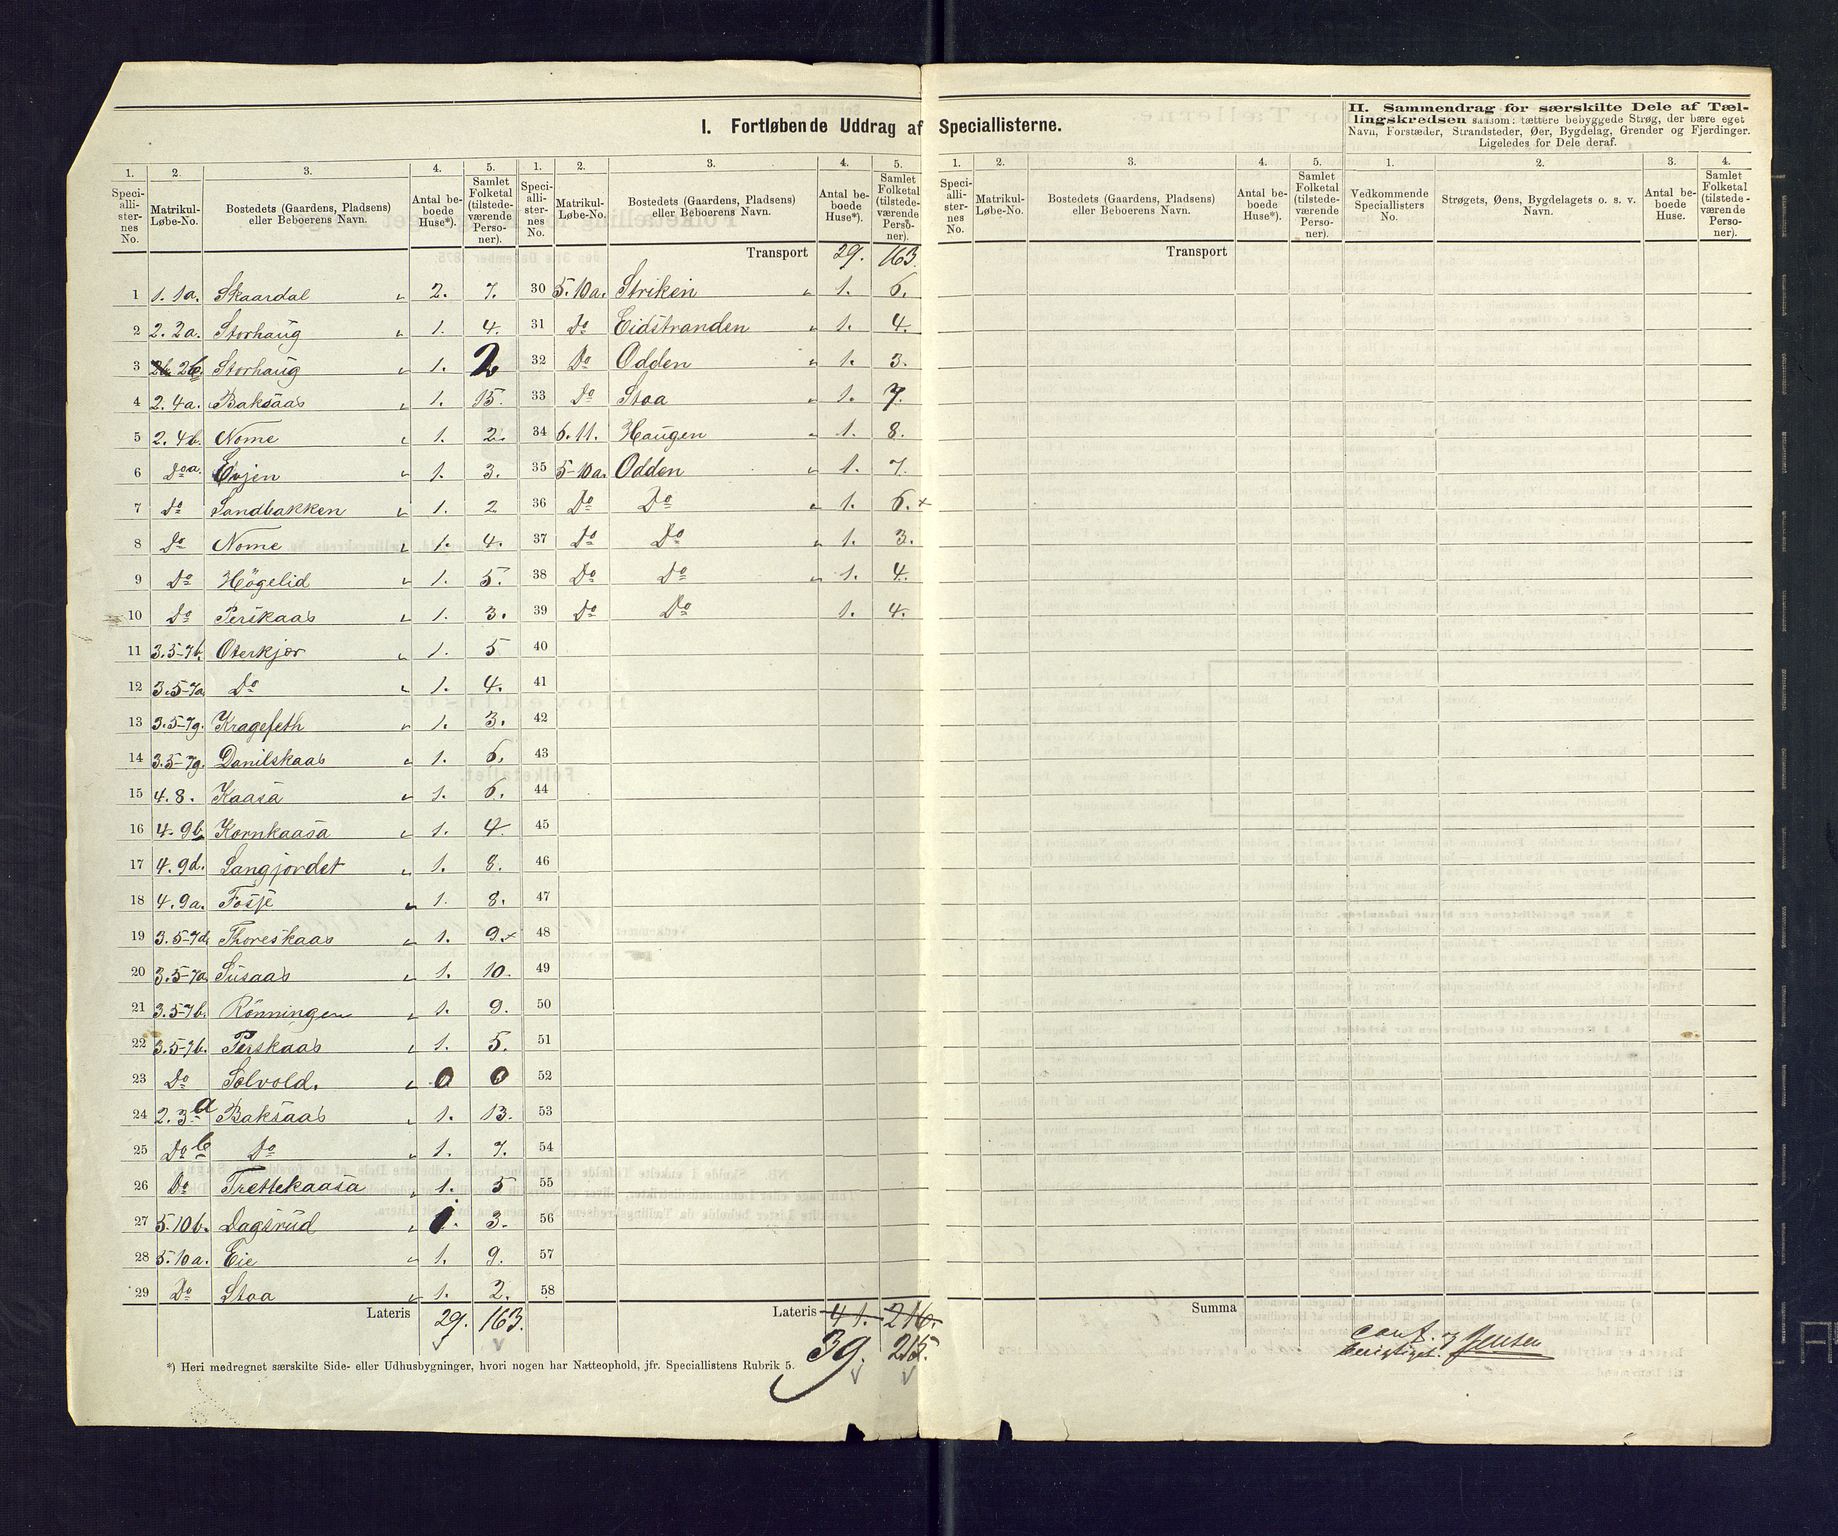 I. Fortløbende Uddrag af Speciallisterne.
II. Sammendrag for særskilte Dele af Tæl-
lingskredsen saasom: tættere bebyggede Strøg, der bære eget
Navn, Forstæder, Strandsteder, Øer, Bygdelag, Grender og Fjerdinger.
Ligeledes for Dele deraf.
1. 2. 3. 4. 5. 1. 2. 3. 4. 5. 1. 2. 3. 4. 5. 1. 2. 3. 4.
Speci-alli-ster-nes No. Matrikul-Løbe-No. Bostedets (Gaardens, Pladsens) eller Beboerens Navn. Antal be-boede Huse*). Samlet Folketal (tilstede-værende Perso-ner).
Speci-alli-ster-nes No. Matrikul-Løbe-No. Bostedets (Gaardens, Pladsens) eller Beboerens Navn. Antal be-boede Huse*). Samlet Folketal (tilstede-værende Perso-ner).
Speci-alli-ster-nes No. Matrikul-Løbe-No. Bostedets (Gaardens, Pladsens) eller Beboerens Navn. Antal be-boede Huse*). Samlet Folketal (tilstede-værende Perso-ner).
Vedkommende Speciallisters No. Strøgets, Øens, Bygdelagets o. s. v. Navn. Antal be-boede Huse. Samlet Folketal (tilstede-værende Perso-ner).
Transport 29. 163. Transport
1 1. 1a. Skaardal " 2. 7. 30 5. 10a. Striken " 1. 6.
2 2. 2a. Storhaug " 1. 4. 31 Do Eidstranden " 1. 4.
3 2b Storhaug " 1. 2 32 Do Odden " 1. 3.
4 2. 4a. Baksaas " 1. 15. 33 Do Stoa " 1. 7.
5 2. 4b. Nome " 1. 2. 34 6. 11. Haugen " 1. 8.
6 Do a. Evjen " 1. 3. 35 5-10a. Odden " 1. 7.
7 Do Sandbakken " 1. 2 36 Do Do " 1. 6. +
8 Do Nome " 1. 4. 37 Do Do " 1. 3.
9 Do Högelid " 1. 5. 38 Do Do " 1. 4.
10 Do Perskaas " 1. 3. 39 Do Do 1. 4.
11 3. 5-7b. Oterkjær " 1. 5 40
12 3. 5-7a Do " 1. 4. 41
13 3. 5-7g. Kragefeth " 1. 3. 42
14 3. 5-7g. Danilskaas " 1. 6. 43
15 4. 8. Kaasa " 1. 6. 44
16 4. 9b Kornkaasa " 1. 4. 45
17 4. 9d. Langjordet " 1. 8. 46
18 4. 9a. Fosse " 1. 8. 47
19 3. 5-7d Thoreskaas " 1. 9. + 48
20 3. 5-7a Susaas " 1. 10. 49
21 3. 5-7b. Rönningen " 1. 9. 50
22 3. 5-7b. Perskaas " 1. 5. 51
23 Do Solvold. " 0 0 52
24 2. 3a Baksaas " 1. 13. 53
25 Do b Do " 1. 7. 54
26 Do Trettekaasa " 1. 5 55
27 5. 10b. Dagsrud " 1. 3. 56
28 5. 10a. Eie " 1. 9. 57
29 Do Stoa " 1. 2. 58
Lateris 29. 163. Lateris 41. 216. Summa
39. 215.
conf. og
Jensen
*) Heri medregnet særskilte Side- eller Udhusbygninger, hvori nogen har Natteophold, jfr. Speciallistens Rubrik 5.